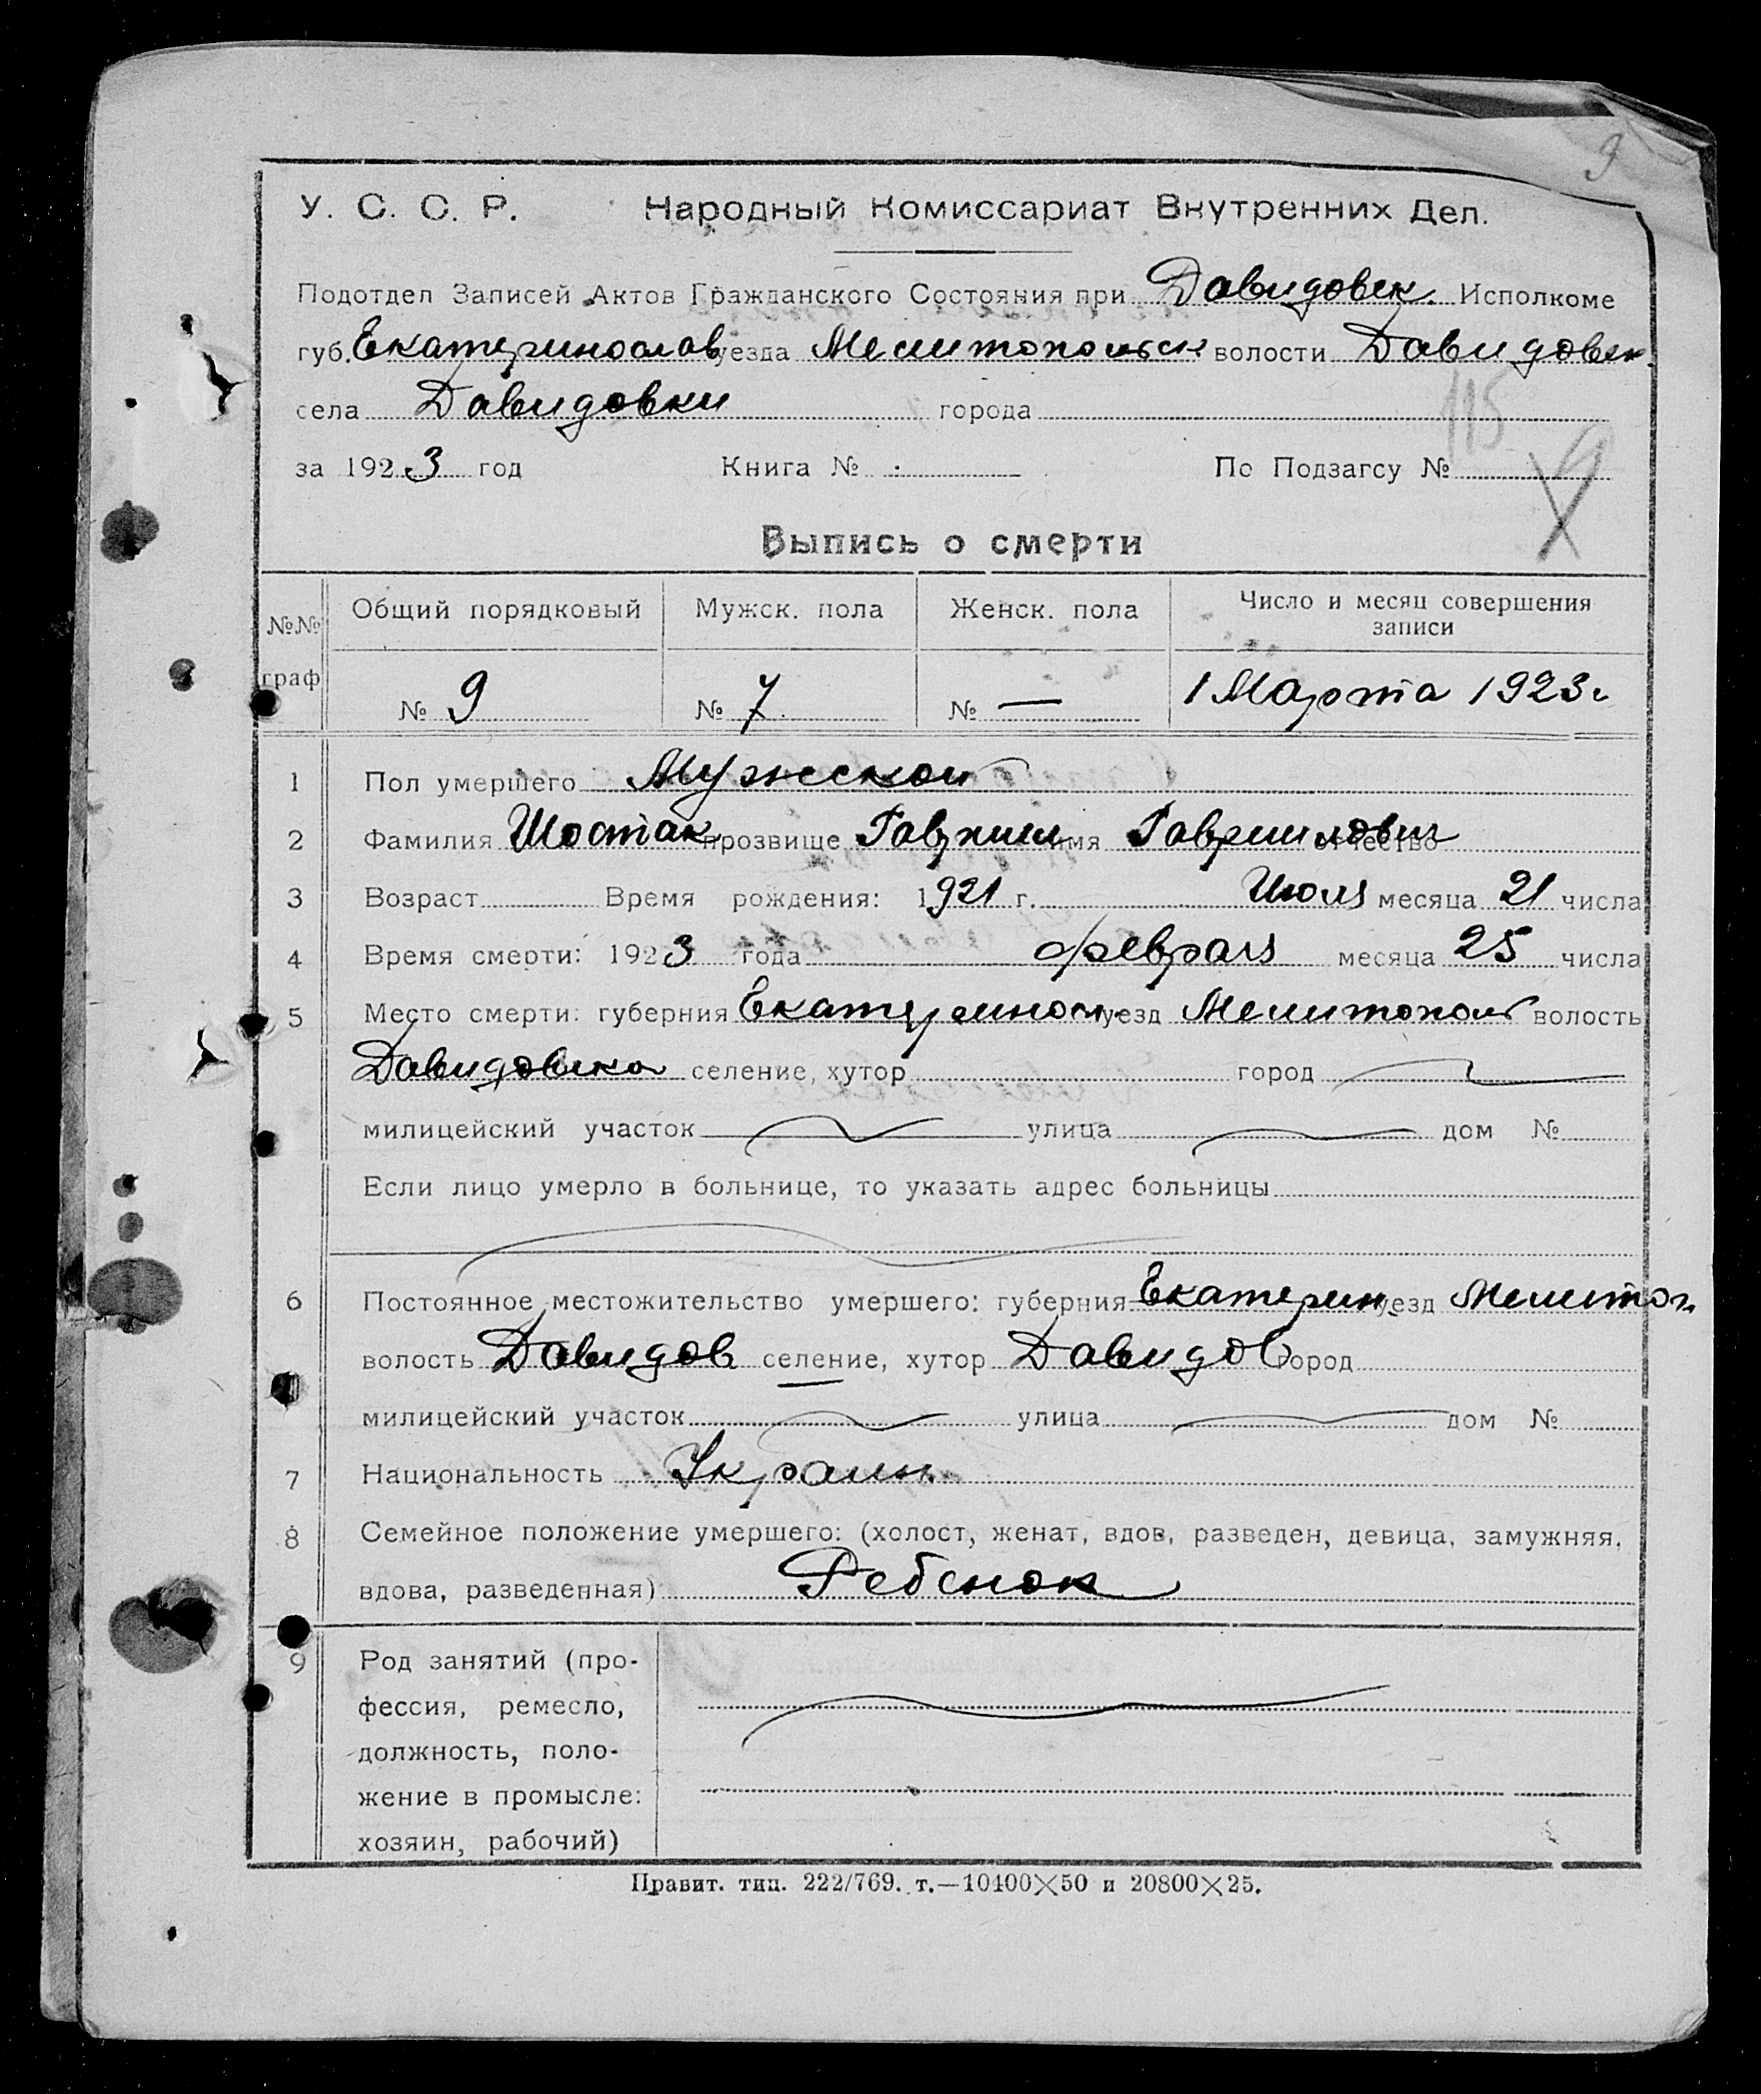 9
У. С. С. Р. Народный Комиссариат Внутренних Дел.
Подотдел Записей Актов Гражданского Состояния при Давидовск. Исполкоме
губ. Екатеринослав уезда Мелитопольск волости Давидовск
села Давидовки города
115
за 1923 год Книга № По Подзагсу № 9
Выпись о смерти
№№ граф Общий порядковый Мужск. пола Женск. пола Число и месяц совершения записи
№ 9 № 7 № — 1 Марта 1923 г
1 Пол умершего Мужской
2 Фамилия Шостак прозвище Гавриил имя Гавриилович отчество
3 Возраст Время рождения: 1921 г. Июля месяца 21 числа
4 Время смерти: 1923 года февраля месяца 25 числа
5 Место смерти: губерния Екатериносл уезд Мелитополь волость
Давидовка селение, хутор город
милицейский участок улица дом №
Если лицо умерло в больнице, то указать адрес больницы
6 Постоянное местожительство умершего: губерния Екатерин. уезд Мелитоп
волость Давидов селение, хутор Давидов город
милицейский участок улица дом №
7 Национальность Украин.
8 Семейное положение умершего: (холост, женат, вдов, разведен, девица, замужняя,
вдова, разведенная) Ребенок
9 Род занятий (про-
фессия, ремесло,
должность, поло-
жение в промысле:
хозяин, рабочий)
Правит. тип. 222/769. т.—10400✕50 и 20800✕25.